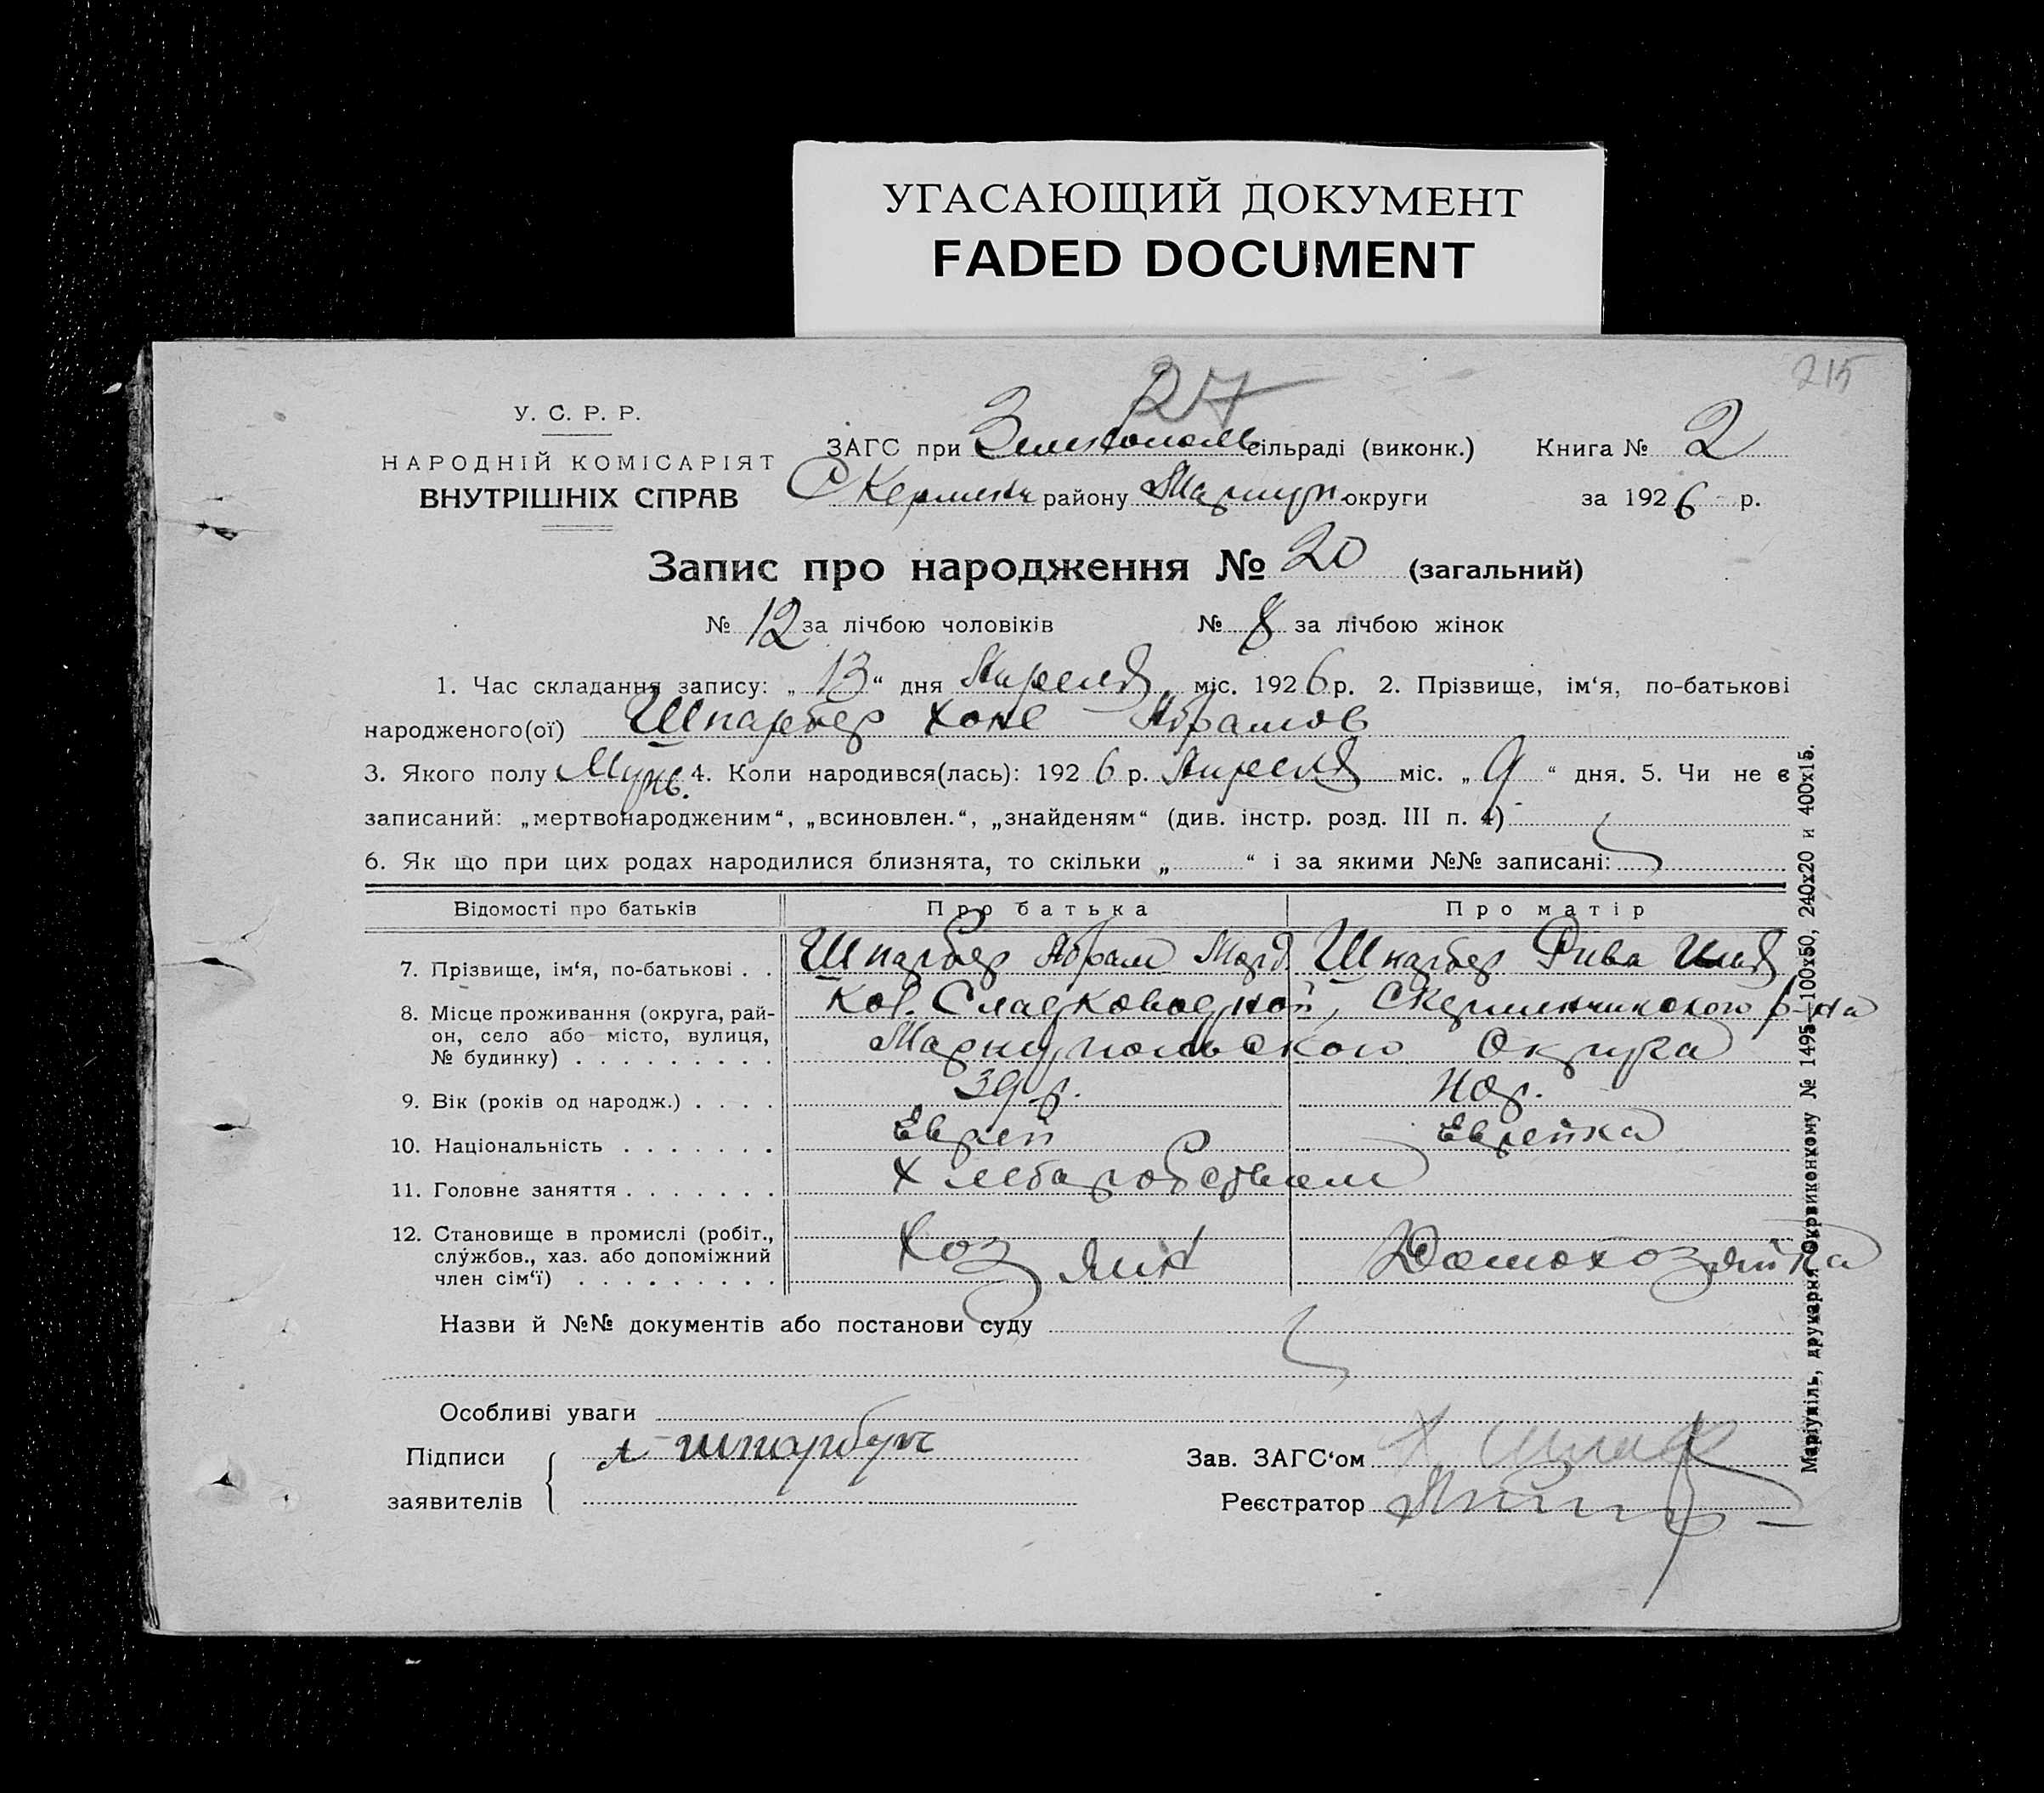 УГАСАЮЩИЙ ДОКУМЕНТ
FADED DOCUMENT
215
27
У. С. Р. Р.
НАРОДНІЙ КОМІСАРІЯТ
ВНУТРІШНІХ СПРАВ
ЗАГС при Зеленополь сільраді (виконк.) Книга № 2
С Кермен району Мариуп. округи за 1926 р.
Запис про народження № 20 (загальний)
№ 12 за лічбою чоловіків № 8 за лічбою жінок
1. Час складання запису: „13“ дня Апреля міс. 1926 р. 2. Прізвище, ім‘я, по-батькові
народженого(ої) Шпарбер Хоне Абрамов
3. Якого полу Муж. 4. Коли народився(лась): 1926 р. Апреля міс. „9“ дня. 5. Чи не є
записаний: „мертвонародженим“, „всиновлен.“, „знайденям“ (див. інстр. розд. III п. 4)
6. Як що при цих родах народилися близнята, то скільки „ “ і за якими №№ записані:
Відомості про батьків Про батька Про матір
7. Прізвище, ім‘я, по-батькові . . Шпарбер Абрам Морд. Шпарбер Рива
8. Місце проживання (округа, рай-
он, село або місто, вулиця,
№ будинку) . . . . . . . . .
Кол. Сладководной, СКерменчикского р-на
Мариупольского Округа
9. Вік (років од народж.) . . . . 39 р. 40 р.
10. Національність . . . . . . . Еврей Еврейка
11. Головне заняття . . . . . . . Хлебаробством
12. Становище в промислі (робіт.,
службов., хаз. або допоміжний
член сім‘ї) . . . . . . . . .
Хозяин Домохозяйка
Назви й №№ документів або постанови суду
Особливі уваги
Підписи
заявителів
А Шпарбер
Зав. ЗАГС‘ом
Реєстратор
Маріупіль, друкарня Окрвиконкому № 1495—100x50, 240x20 и 400x15.